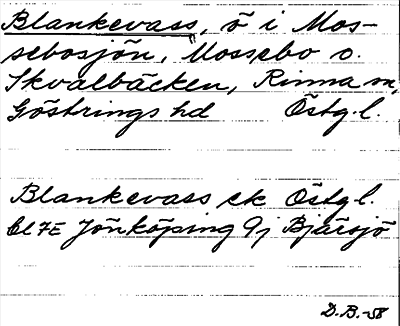 Blankevass, ö i Mos-
sebosjön, Mossebo o.
Skvalbäcken, Rinna sn,
Göstrings hd Östg.l.
Blankevass ek Östgl.
bl 7E Jönköping 9j Bjärsjö
D.B.-58